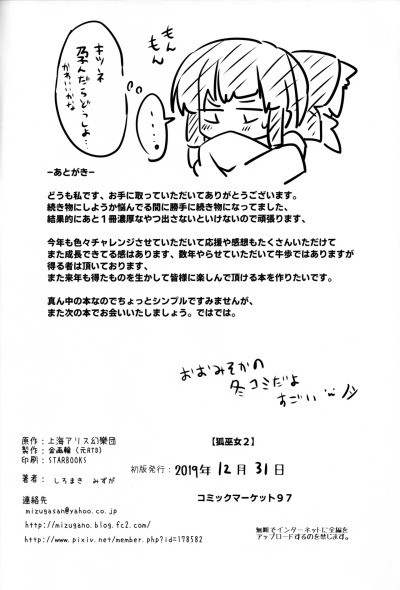 もんもん
キツネ
孕んだらどっしょ…
かわいいかな
‥‥。
ーあとがきー
どうも私です、お手に取っていただいてありがとうございます。
続き物にしようか悩んでる間に勝手に続き物になってました、
結果的にあと１冊濃厚なやつ出さないといけないので頑張ります、
今年も色々チャレンジさせていただいて応援や感想もたくさんいただけて
また成長できてる感はあります、数年やらせていただいて牛歩ではありますが
得る者は頂いております、
また来年も得たものを生かして皆様に楽しんで頂ける本を作りたいです。
真ん中の本なのでちょっとシンプルですみませんが、
また次の本でお会いいたしましょう。ではでは。
おおみそかの
冬コミだよ
すごい
原作：上海アリス幻樂団
製作：金画輪（元RTD）
印刷：STARBOOKS
著者： しろまき みずが
連絡先
mizugasan@yahoo.co.jp
http://mizugano.blog.fc2.com/
http://www.pixiv.net/member.php?id=178582
【狐巫女２】
初版発行：2019年12月31日
コミックマーケット９７
無断でインターネットに全編を
アップロードするのを禁じます。